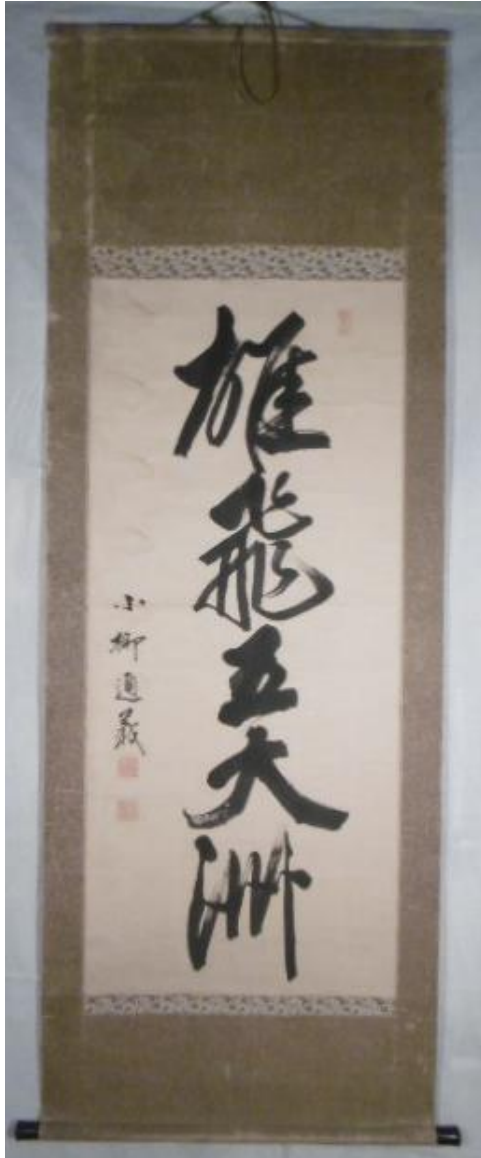 雄飛五大洲
小柳義